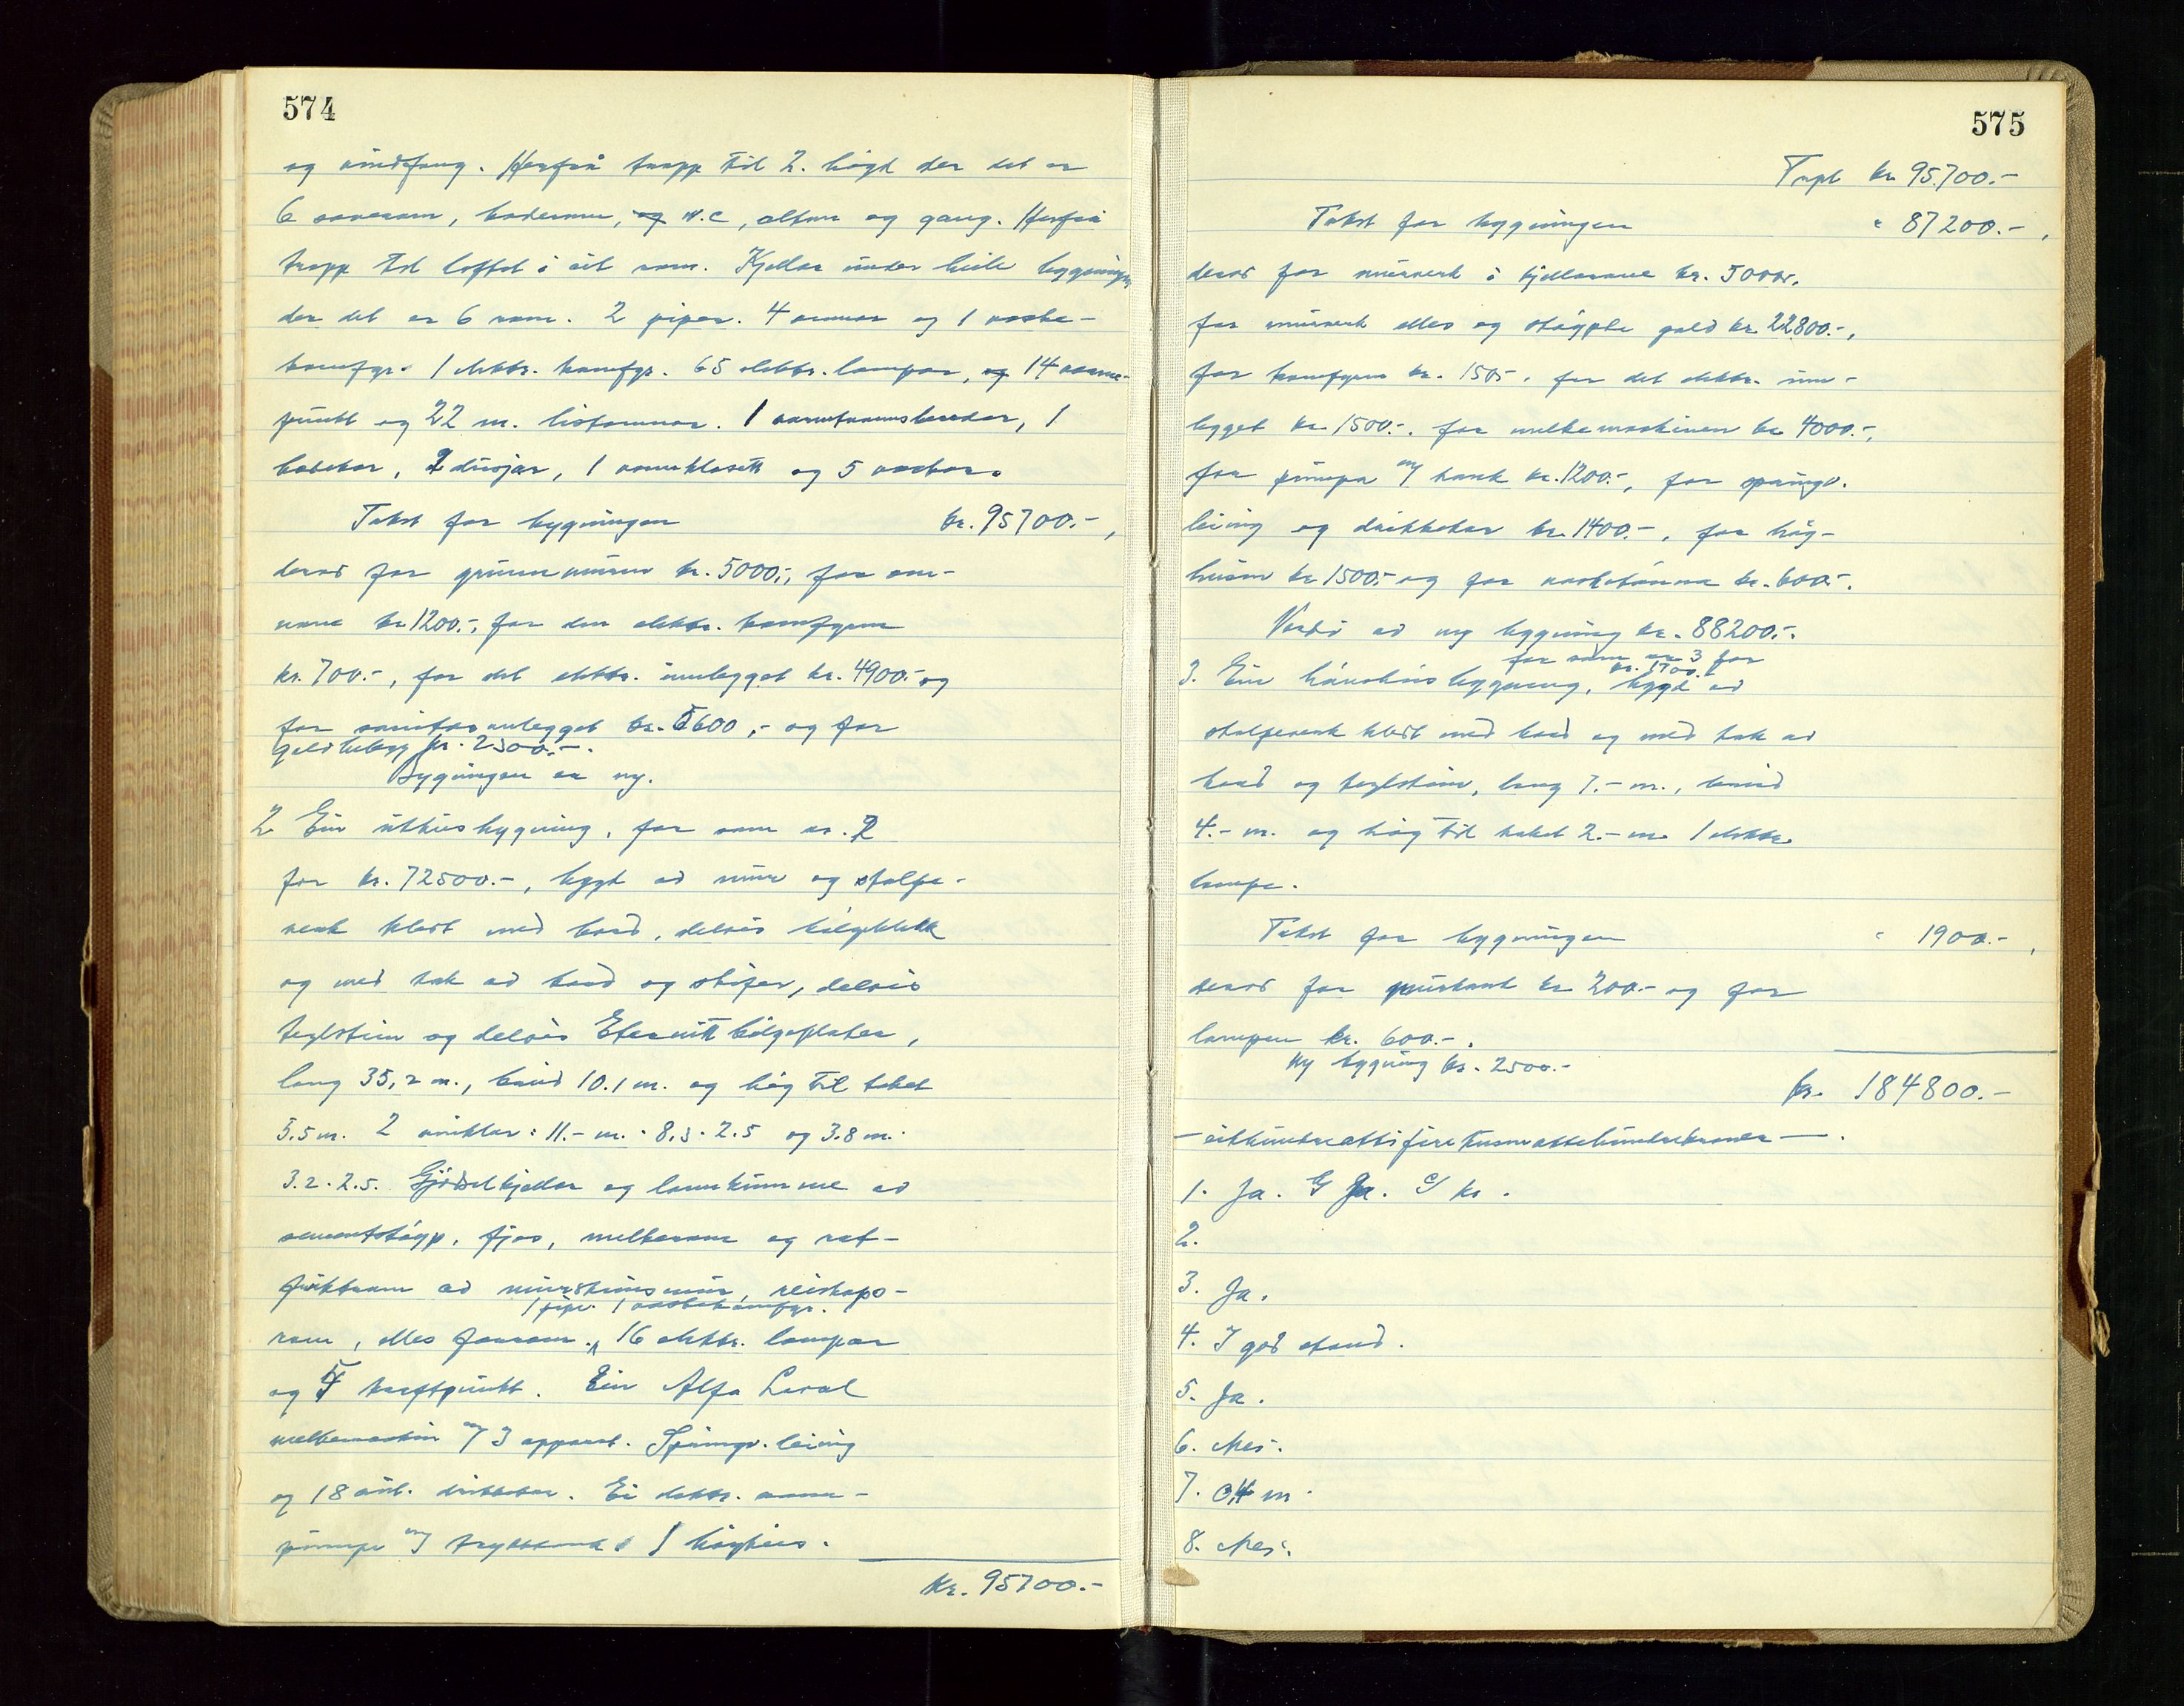 574
og vindfang. Herfrå trapp til 2. högd der det er
6 soverom, baderom, og w.c, altan og gang. Herfrå
trapp til loftet i eit rom. Kjellar under heile bygningen
der det er 6 rom. 2 piper. 4 omnar og 1 vaske-
komfyr. 1 elektr. komfyr. 65 elektr. lampar, og 14 varme-
punkt og 22 m. listomnar. 1 varmtvannsbereder, 1
badekar, 2 dusjar, 1 vannklosett og 5 vaskar.
Takst for bygningen kr. 95700.-,
derav for grunnmuren kr. 5000.-, for om-
nane kr 1200.-, for den elektr. komfyren
kr. 700.-, for det elektr. innlegget kr. 4900.- og
for sanitæranlegget kr. 5600,- og for
golvbelegg kr. 2300.-.
Bygningen er ny.
2. Ein uthusbygning, för som nr. 2
for kr. 72500.-, bygt av mur og stolpe-
verk kledt med bord, delvis bölgeblekk
og med tak av bord og skifer, delvis
teglstein og delvis Eternitt bölgeplater,
lang 35,2 m., breid 10.1 m. og høg til taket
5.5 m. 2 vinklar: 11.- m. · 8.3 · 2.5 og 3.8 m.
3.2 · 2.5. Gjödselkjellar og landkumme av
sementstöyp, fjos, melkerom og rot-
fruktrom av mursteinsmur, reiskaps-
1 pipe. 1 vaskekomfyr.
rom, elles forrom. 16 elektr. lampar
og 5 kraftpunkt. Ein Alfa Laval
melkemaskin m/ 3 apparat. Springv. leiing
og 18 aut. drikkekar. Ei elektr. vann-
pumpe m/ trykktank 1 höyhus.
Kr. 95700.-
575
Trpt kr 95.700.-
Takst for bygningen " 87200.-,
derav for murverk i kjellarane kr. 5000.-,
for murverk elles og støypte golv kr 22800.-,
for komfyren kr. 150.-, for det elektr. inn-
legget kr 1500.-, for melkemaskinen kr 4000.-,
for pumpa m/ tank kr. 1200.-, for springv.
leiing og drikkekar kr. 1400.-, for höy-
husen kr 1500.- og for landkumma kr. 600.-.
Verdi av ny bygning kr. 88200.-.
för som nr 3 for
kr. 1700.-
3. Ein hönsehusbygning, bygt av
stolpeverk kledt med bord og med tak av
bord og teglstein, lang 7.- m., breid
4.- m. og høg til taket 2.- m. 1 elektr.
lampe.
Takst for bygningen " 1900.-,
derav for murkant kr 200.- og for
lampen kr. 600.-.
Ny bygning kr. 2500.-
kr. 184800.-
- eitthundreåttifiretusenåttehundrekroner -.
1. Ja. G Ja. S/ kr.
2.
3. Ja.
4. I god stand.
5. Ja.
6. Nei.
7. 0,4 m.
8. Nei.